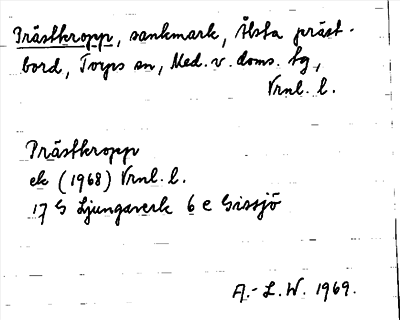 Prästkropp, sankmark, Ålsta präst-
bord, Torps sn, Med. v. doms. tg,
Vrnl. l.
Prästkropp
ek (1968) Vrnl. l.
17 G Ljungaverk 6 e Gissjö
A.-L.W. 1969.